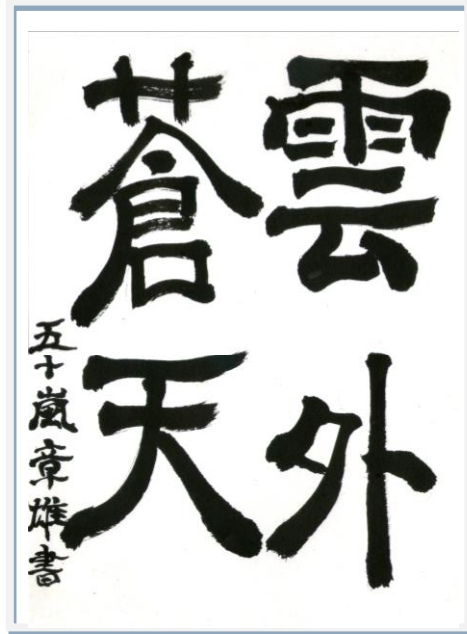 雲外
蒼天
五十嵐章雄書